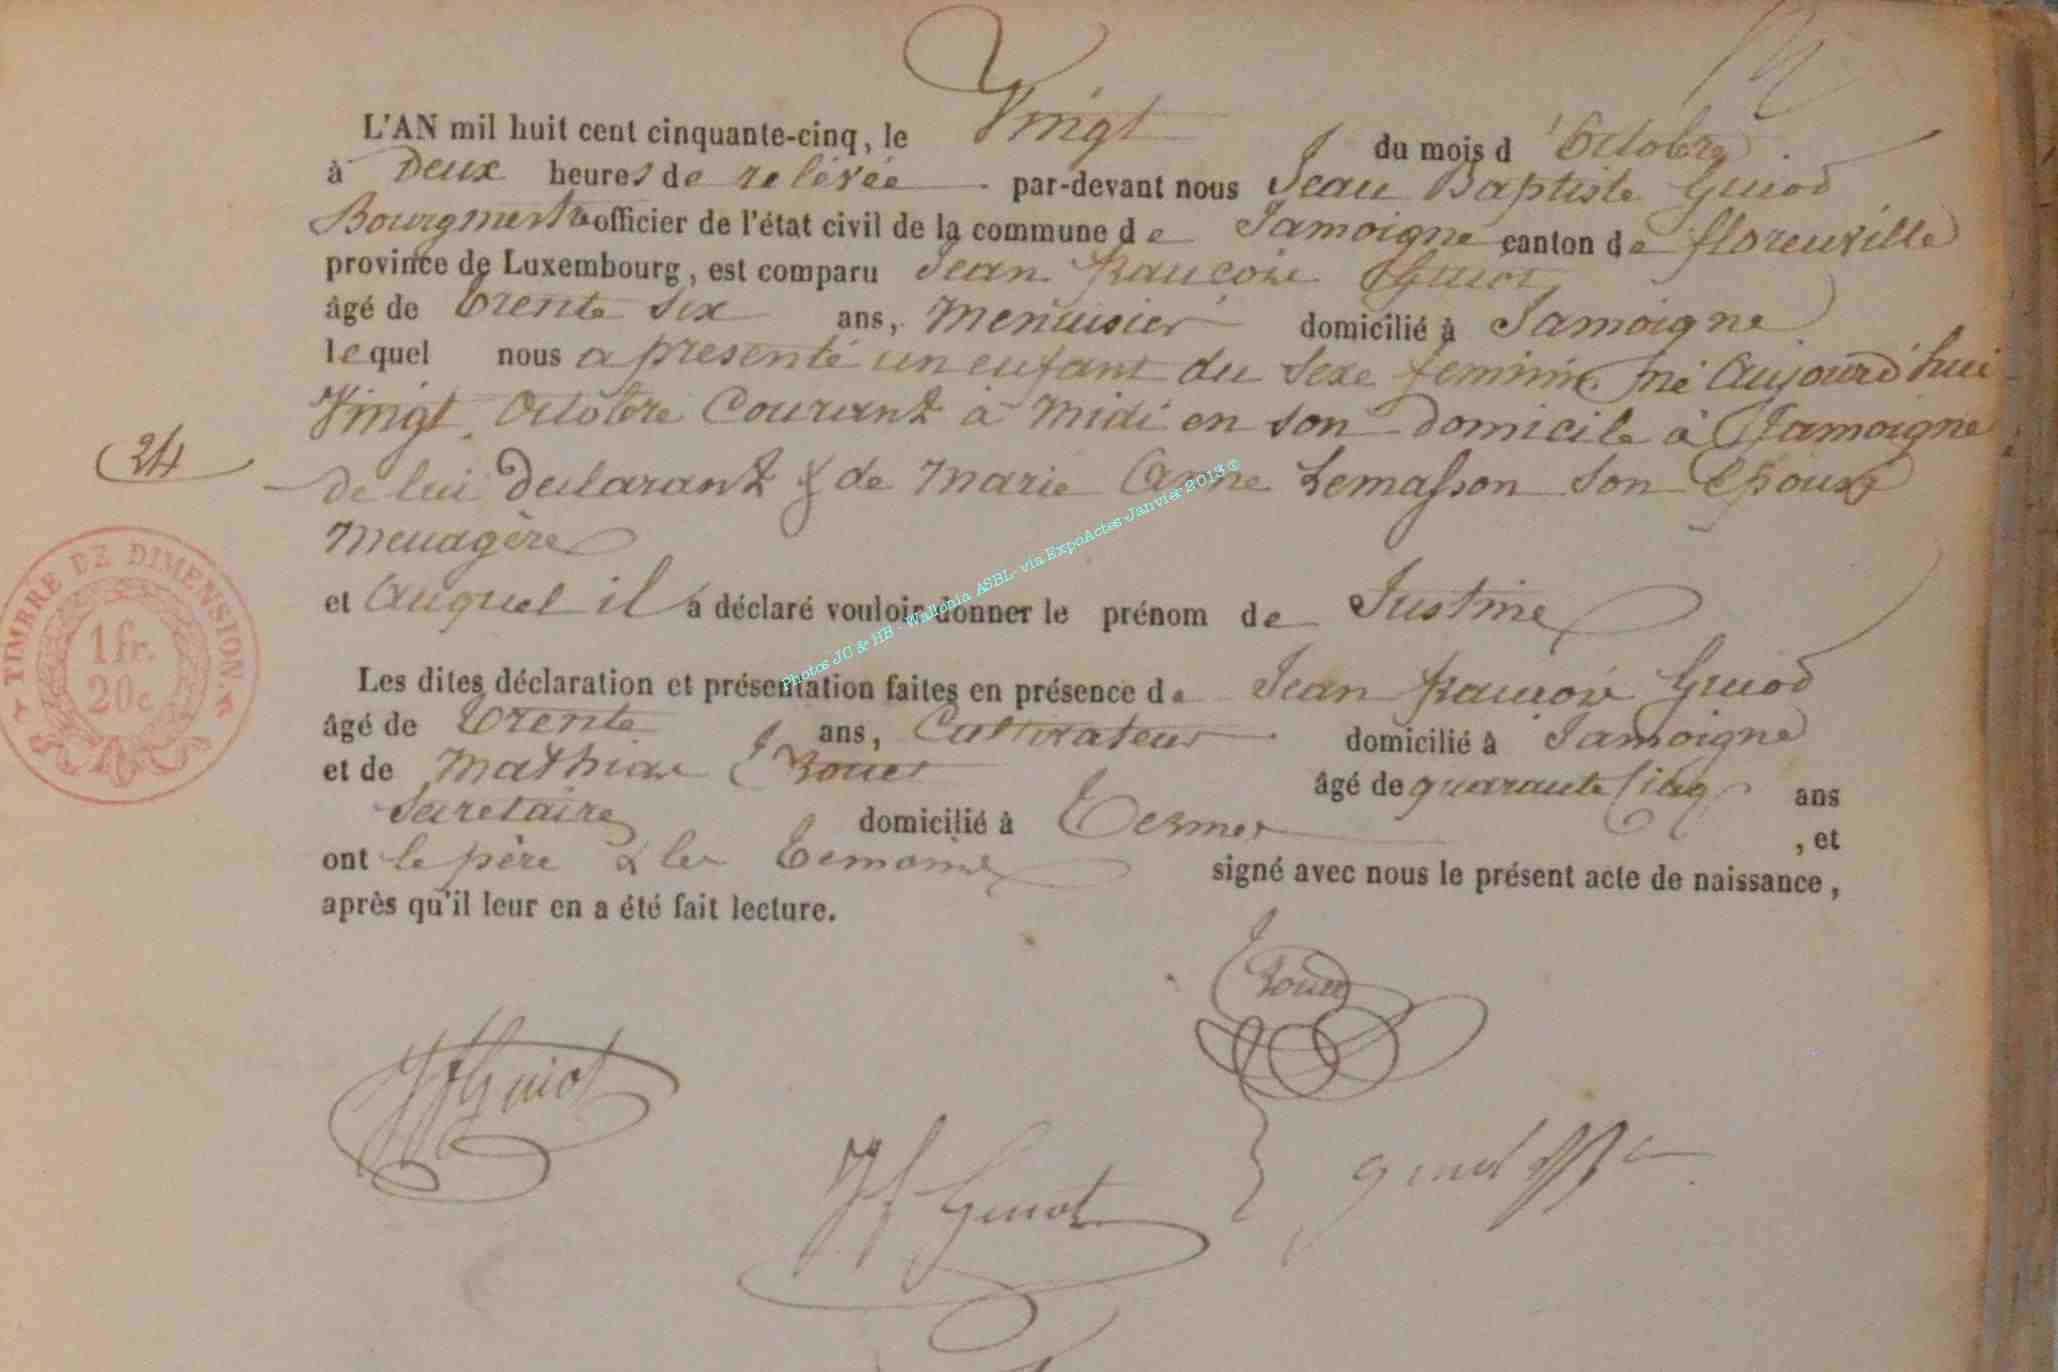 L'AN mil huit cent cinquante-cinq, le Vingt du mois d'Octobre
à Deux heures de relévée par-devant nous Jean Baptiste Guiod
Bourgmestre officier de l'état civil de la commune de Jamoigne canton de florenville
province de Luxembourg, est comparu Jean francois Guiot
âgé de trente six ans, Menuisier domicilié à Jamoigne
lequel nous a presenté un enfant du sexe feminin né Aujourd'hui
Vingt Octobre Courant à Midi en son domicile à Jamoigne
24
de lui declarant & de Marie Anne Lemasson son Epouse
Menagère
et Auquel il a déclaré vouloir donner le prénom de Justine
Les dites déclaration et présentation faites en présence de Jean francois Guiod
âgé de trente ans, Cultivateur domicilié à Jamoigne
et de Mathias Rouer âgé de quarante Cinq ans
Secretaire domicilié à Termes , et
ont le père & les temoins signé avec nous le présent acte de naissance,
après qu'il leur en a été fait lecture.
TIMBRE DE DIMENSION.
1fr.
20c
Photos JC & HB - Wallonia ASBL- via ExpoActes Janvier 2013 ©
Rouer
JF Guiot
JF Guiot